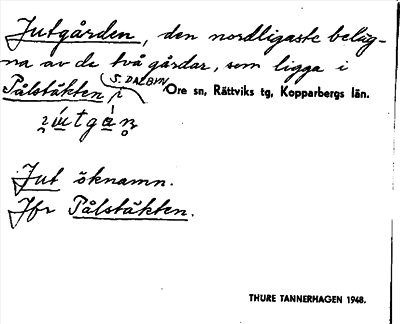 Jutgården, den nordligaste beläg-
na av de två gårdar, som ligga i
Pålstäkten i (S. DALBYN) Ore sn, Rättviks tg, Kopparbergs län.
Jut öknamn.
Jfr Pålstäkten.
THURE TANNERHAGEN 1948.